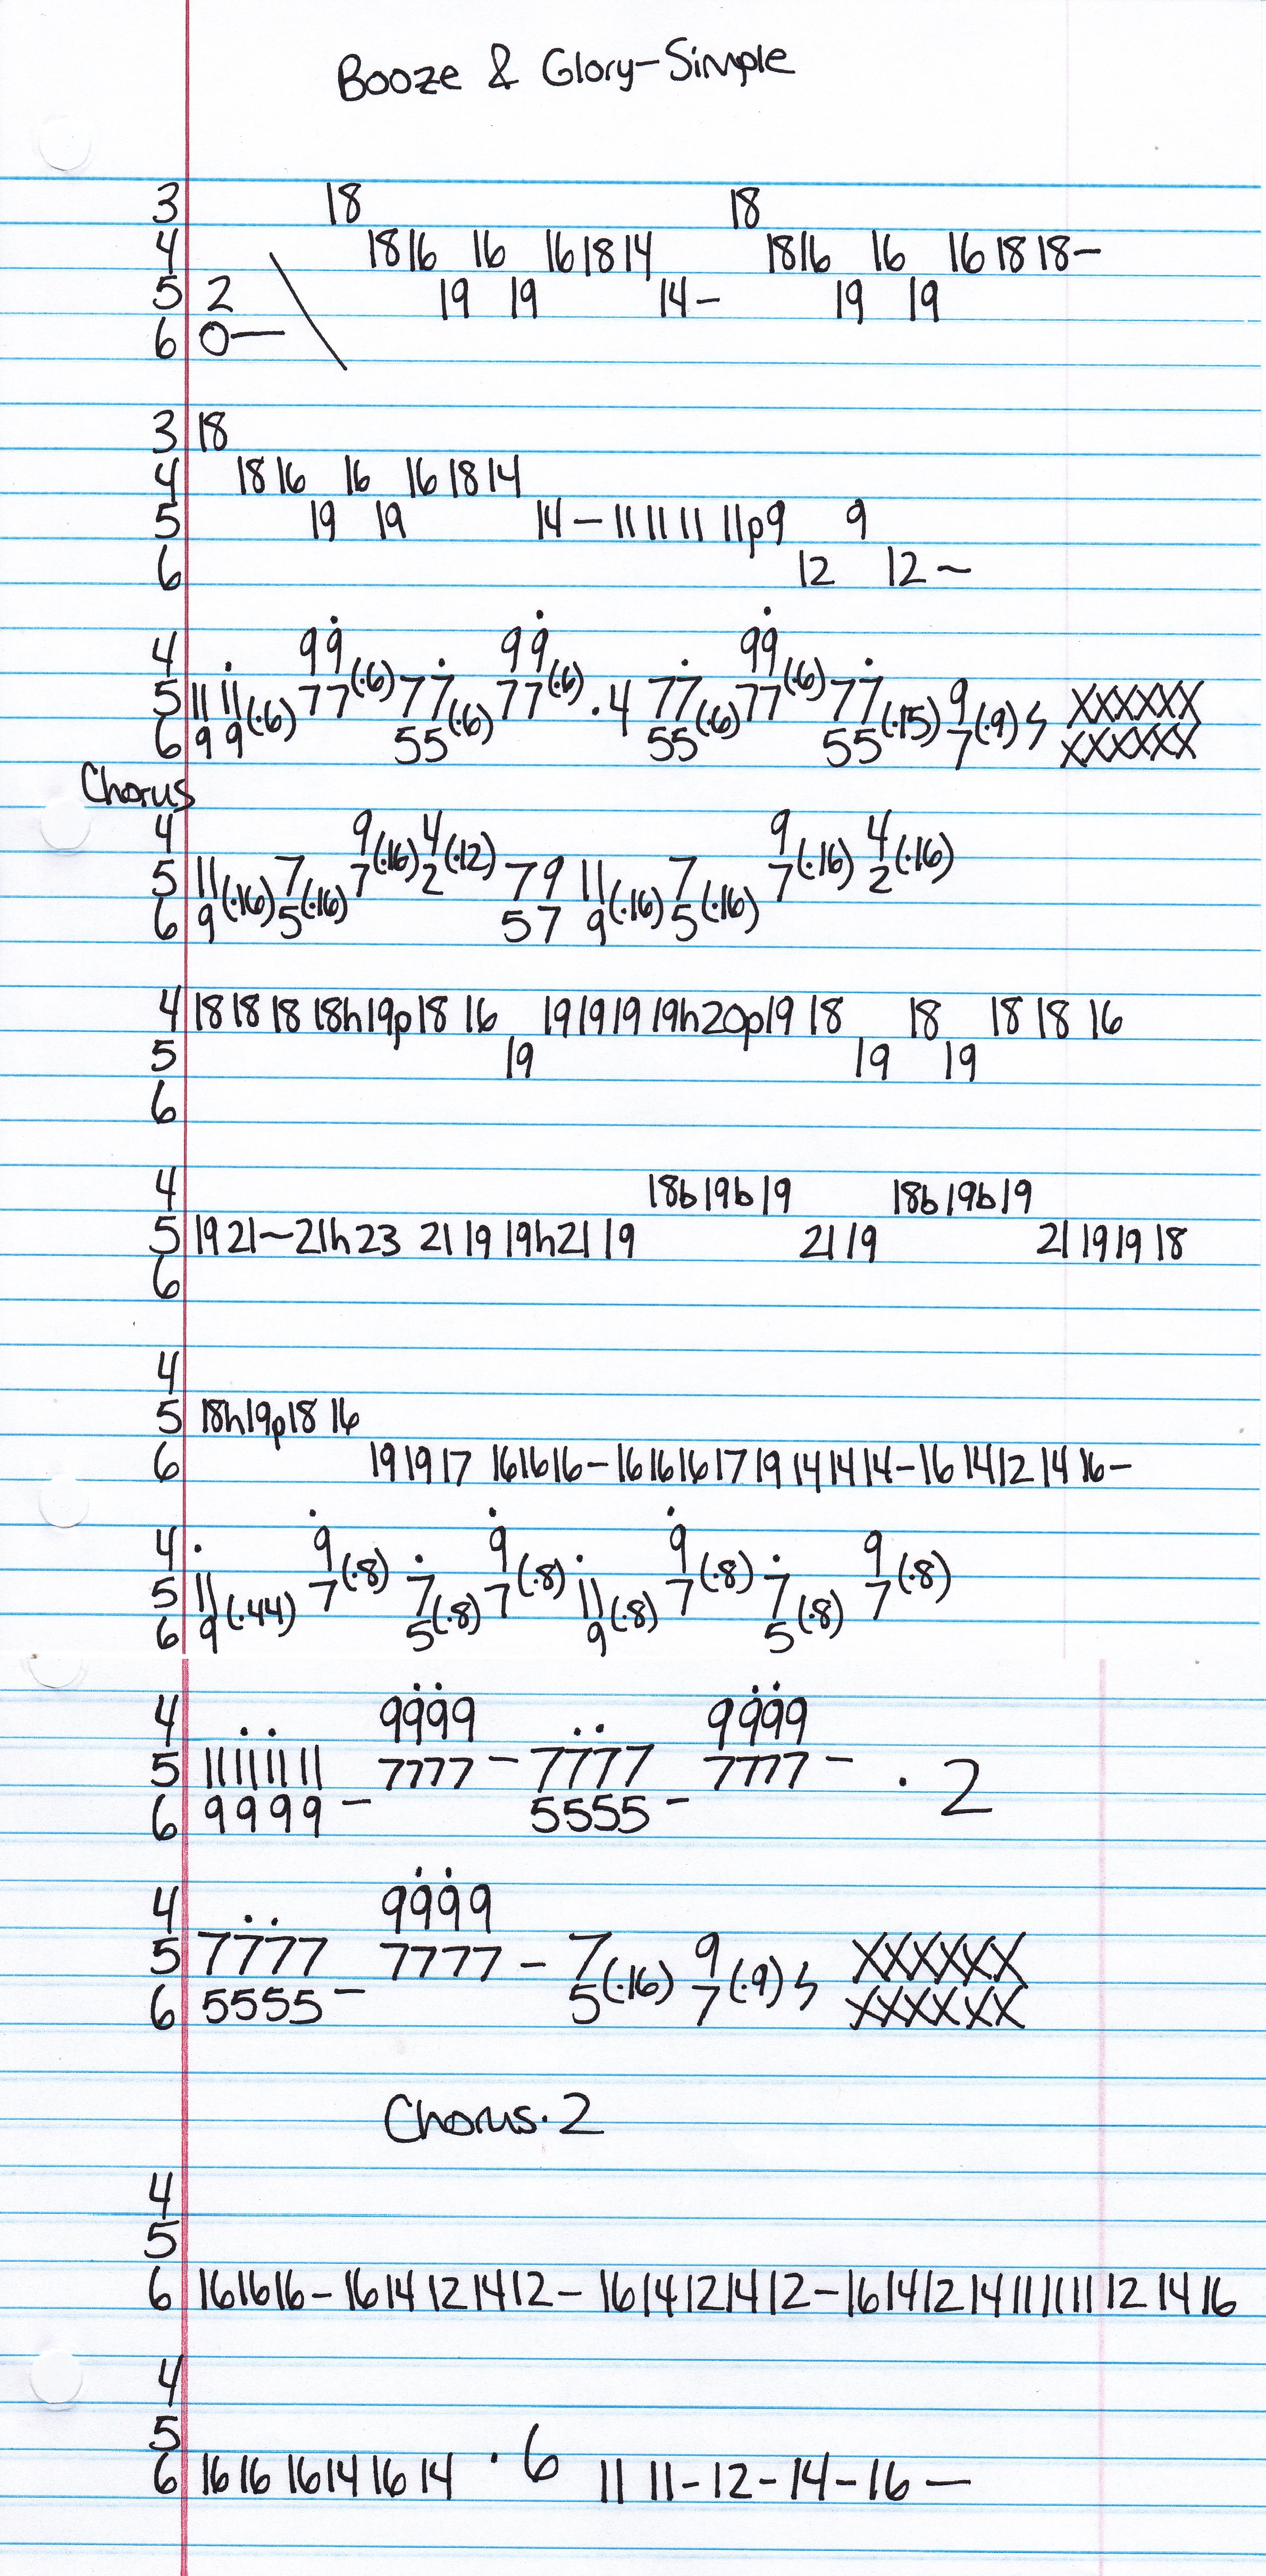 Booze & Glory-Simple
3 18 18
4 1816 16 161814 1816 16 16 18 18-
5 2 19 19 14- 19 19
6 0— \
3 18
4 18 16 16 16 18 14
5 19 19 14 - 11 11 11 11p9 9
6 12 12 ~
4 99 99 99
5 11 11 77(·6) 77 77(·6) ·4 77 77(·6) 77 9 xxxxxx
6 9 9(·6) 55(·6) 55(·6) 55(·15) 7(·9) xxxxxx
Chorus
4 9 4 9 4
5 11 7 7(·16) 2(·12) 7 9 11 7 7(·16) 2(·16)
6 9(·16) 5(·16) 5 7 9(·16) 5(·16)
4 18 18 18 18h19p18 16 19 19 19 19h20p19 18 18 18 18 16
5 19 19 19
6
4 18b19b19 18b19b19
5 19 21~21h23 21 19 19h21 19 21 19 21 19 19 18
6
4
5 18h19p18 16
6 19 19 17 16 16 16-16 16 16 17 19 14 14 14-16 14 12 14 16-
4 9 9 9 9
5 11 7(·8) 7 7(·8) 11 7(·8) 7 7(·8)
6 9(·44) 5(·8) 9(·8) 5(·8)
4 9999 9999
5 11 11 11 11 7777 - 7777 7777 - ·2
6 9999 - 5555 -
4 9999
5 7777 7777 - 7 9 xxxxxx
6 5555 - 5(·16) 7(·9) xxxxxx
Chorus·2
4
5
6 16 16 16-16 14 12 14 12-16 14 12 14 12-16 14 12 14 11 11 11 12 14 16
4
5
6 16 16 16 14 16 14 ·6 11 11-12-14-16—